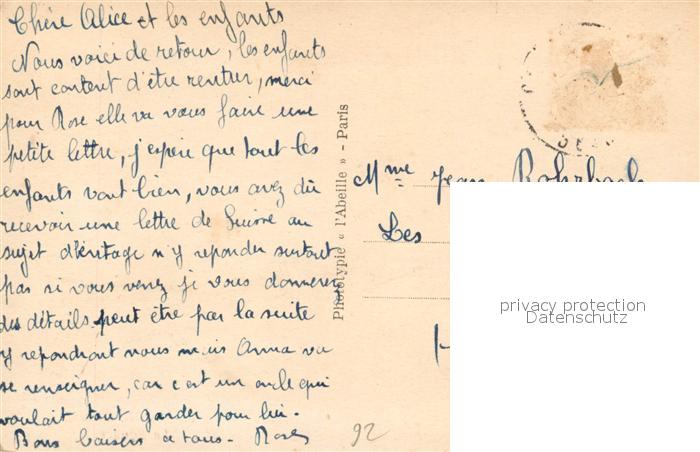 Chère Alice et les enfants
Nous voici de retour, les enfants
sont content d'être rentrer, merci
pour Rose elle va vous faire une
petite lettre, j'espère que tout les
enfants vont bien, vous avez dû
recevoir une lettre de Suisse au
sujet d'héritage n'y reponder surtout
pas si vous venez je vous donnerer
des détails peut être par la suite
y repondront nous mais Anna va
se renseigner, car c'est un oncle qui
voulait tout garder pour lui.
Bons baisers a tous - Rose
Phototypie « l'Abeille » - Paris
Mme Jean Rohrbach
Les
92
privacy protection
Datenschutz